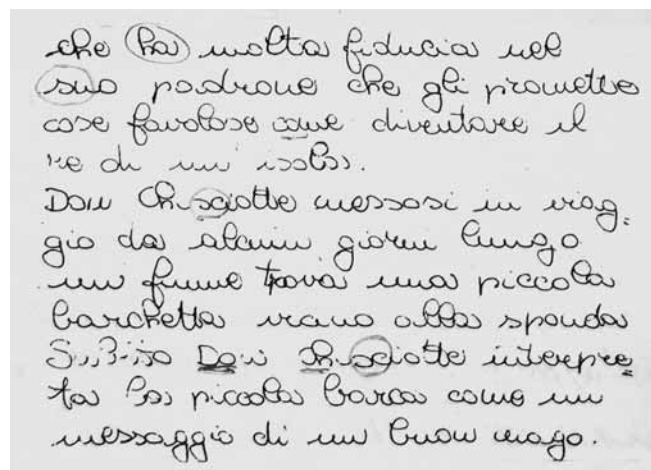 che ha molta fiducia nel
suo padrone che gli promette
cose favolose come diventare il
re di un isola.
Don Chisciotte messosi in viag=
gio da alcuni giorni lungo
un fiume trova una piccola
barchetta vicino alla sponda
Subito Don Chisciotte interpre=
ta la piccola barca come un
messaggio di un buon mago.